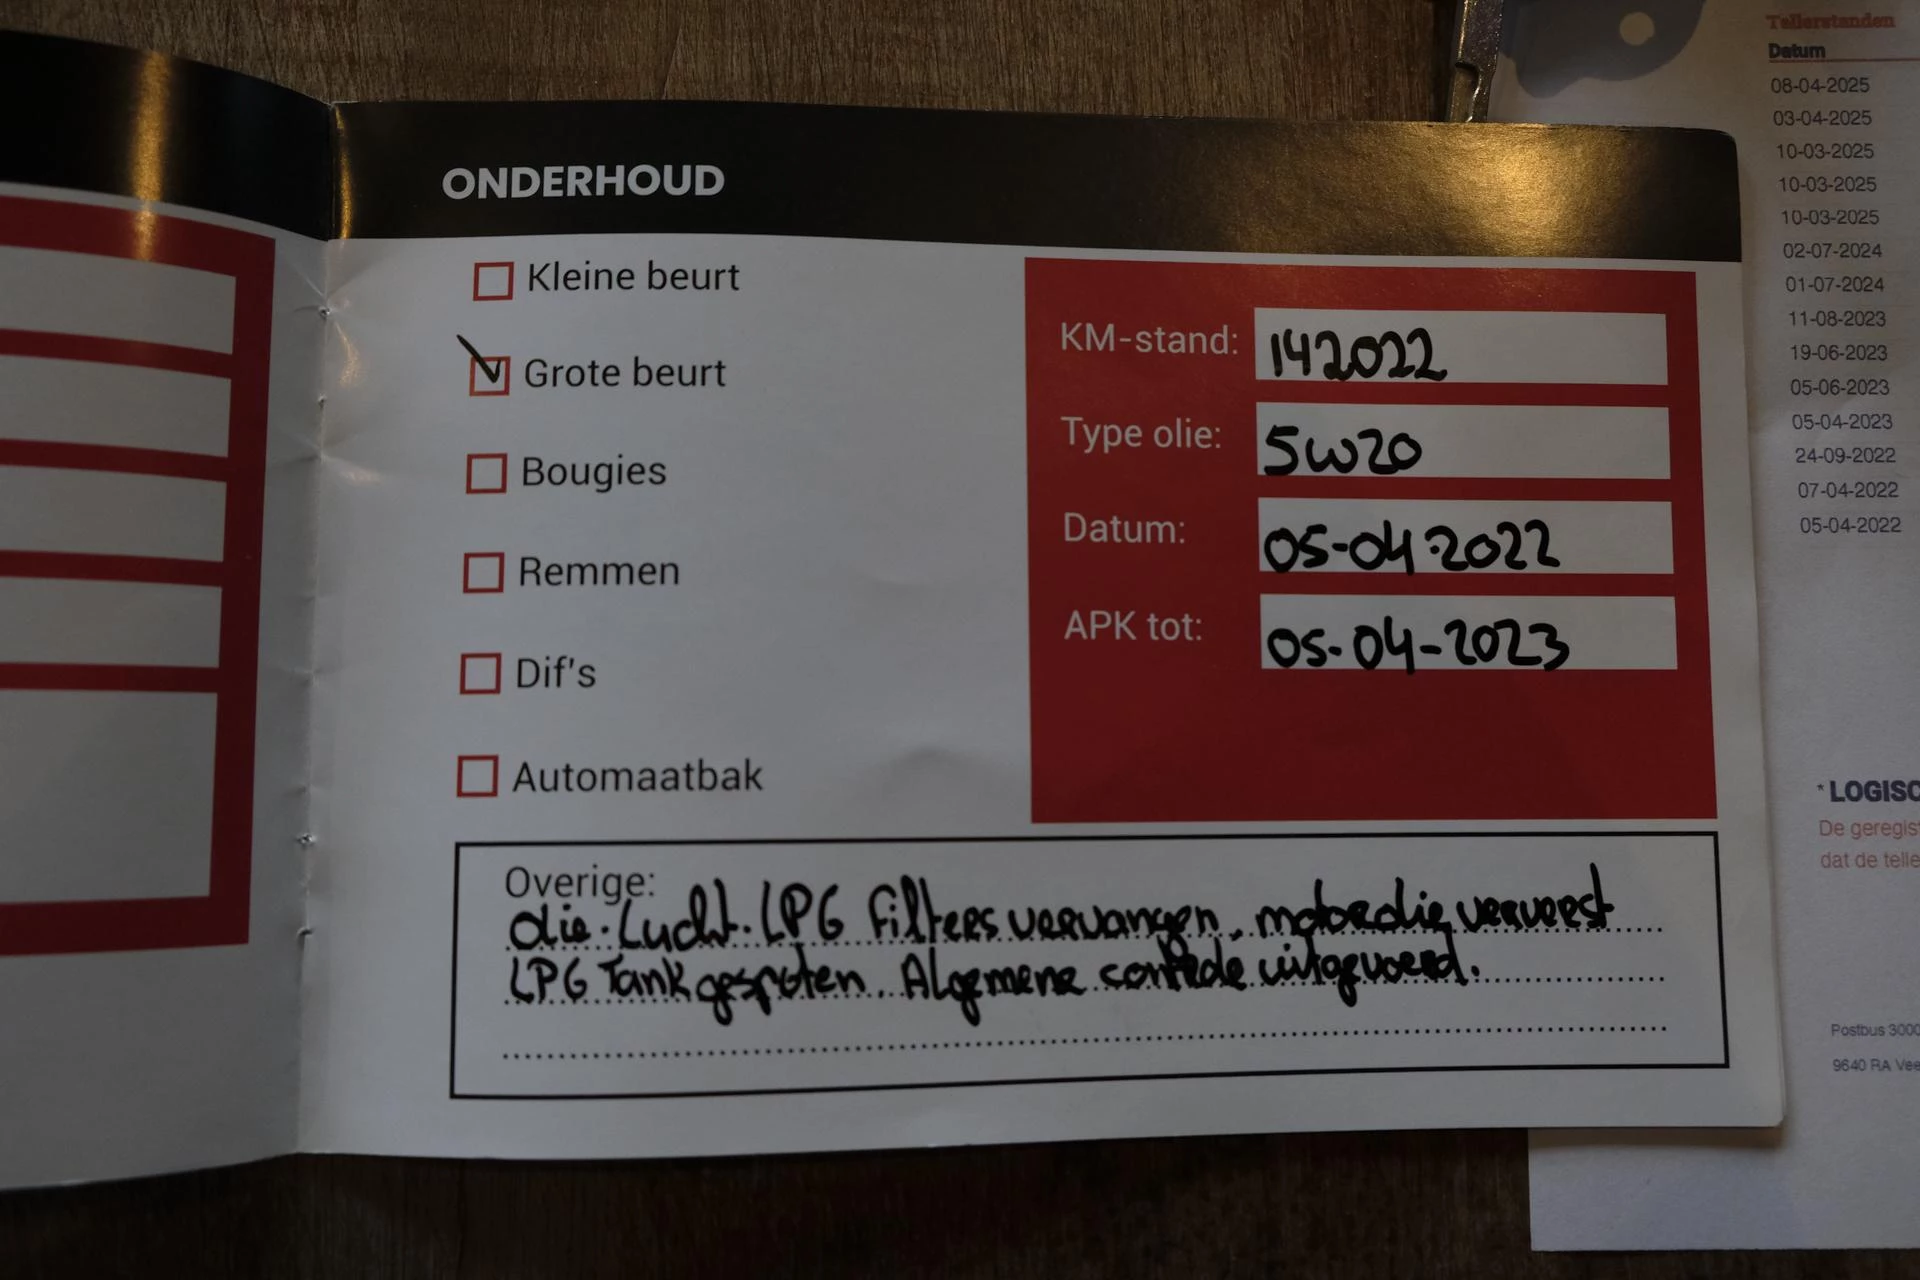 ONDERHOUD
Kleine beurt
Grote beurt
Bougies
Remmen
Dif's
Automaatbak
KM-stand: 142022
Type olie: 5W20
Datum: 05-04-2022
APK tot: 05-04-2023
Overige:
olie. Lucht. LPG Filters vervangen. motorolie ververst
LPG Tank gespoten. Algemene controle uitgevoerd.
Tellerstanden
Datum
08-04-2025
03-04-2025
10-03-2025
10-03-2025
10-03-2025
02-07-2024
01-07-2024
11-08-2023
19-06-2023
05-06-2023
05-04-2023
24-09-2022
07-04-2022
05-04-2022
* LOGISC
De geregis
dat de telle
Postbus 3000
9640 RA Vee